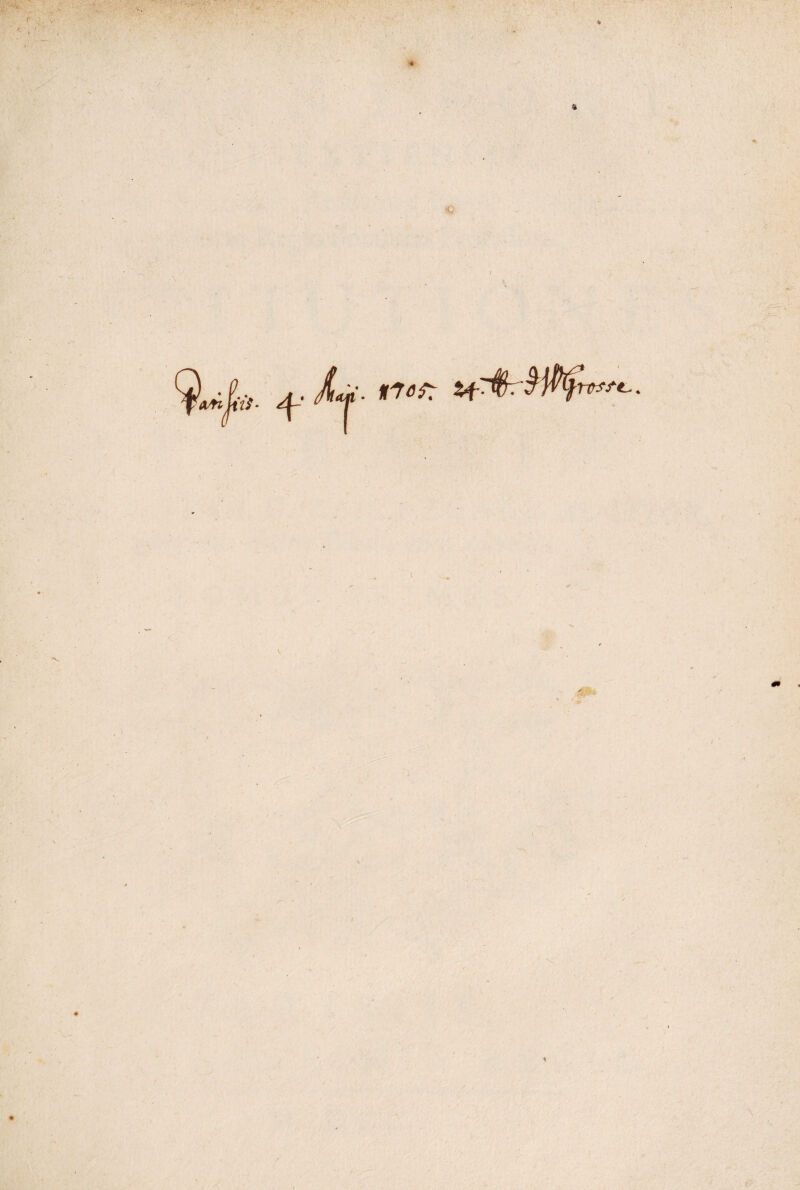 Parisiis. 4. Maji. 1705. 24. ₶. Grosse.